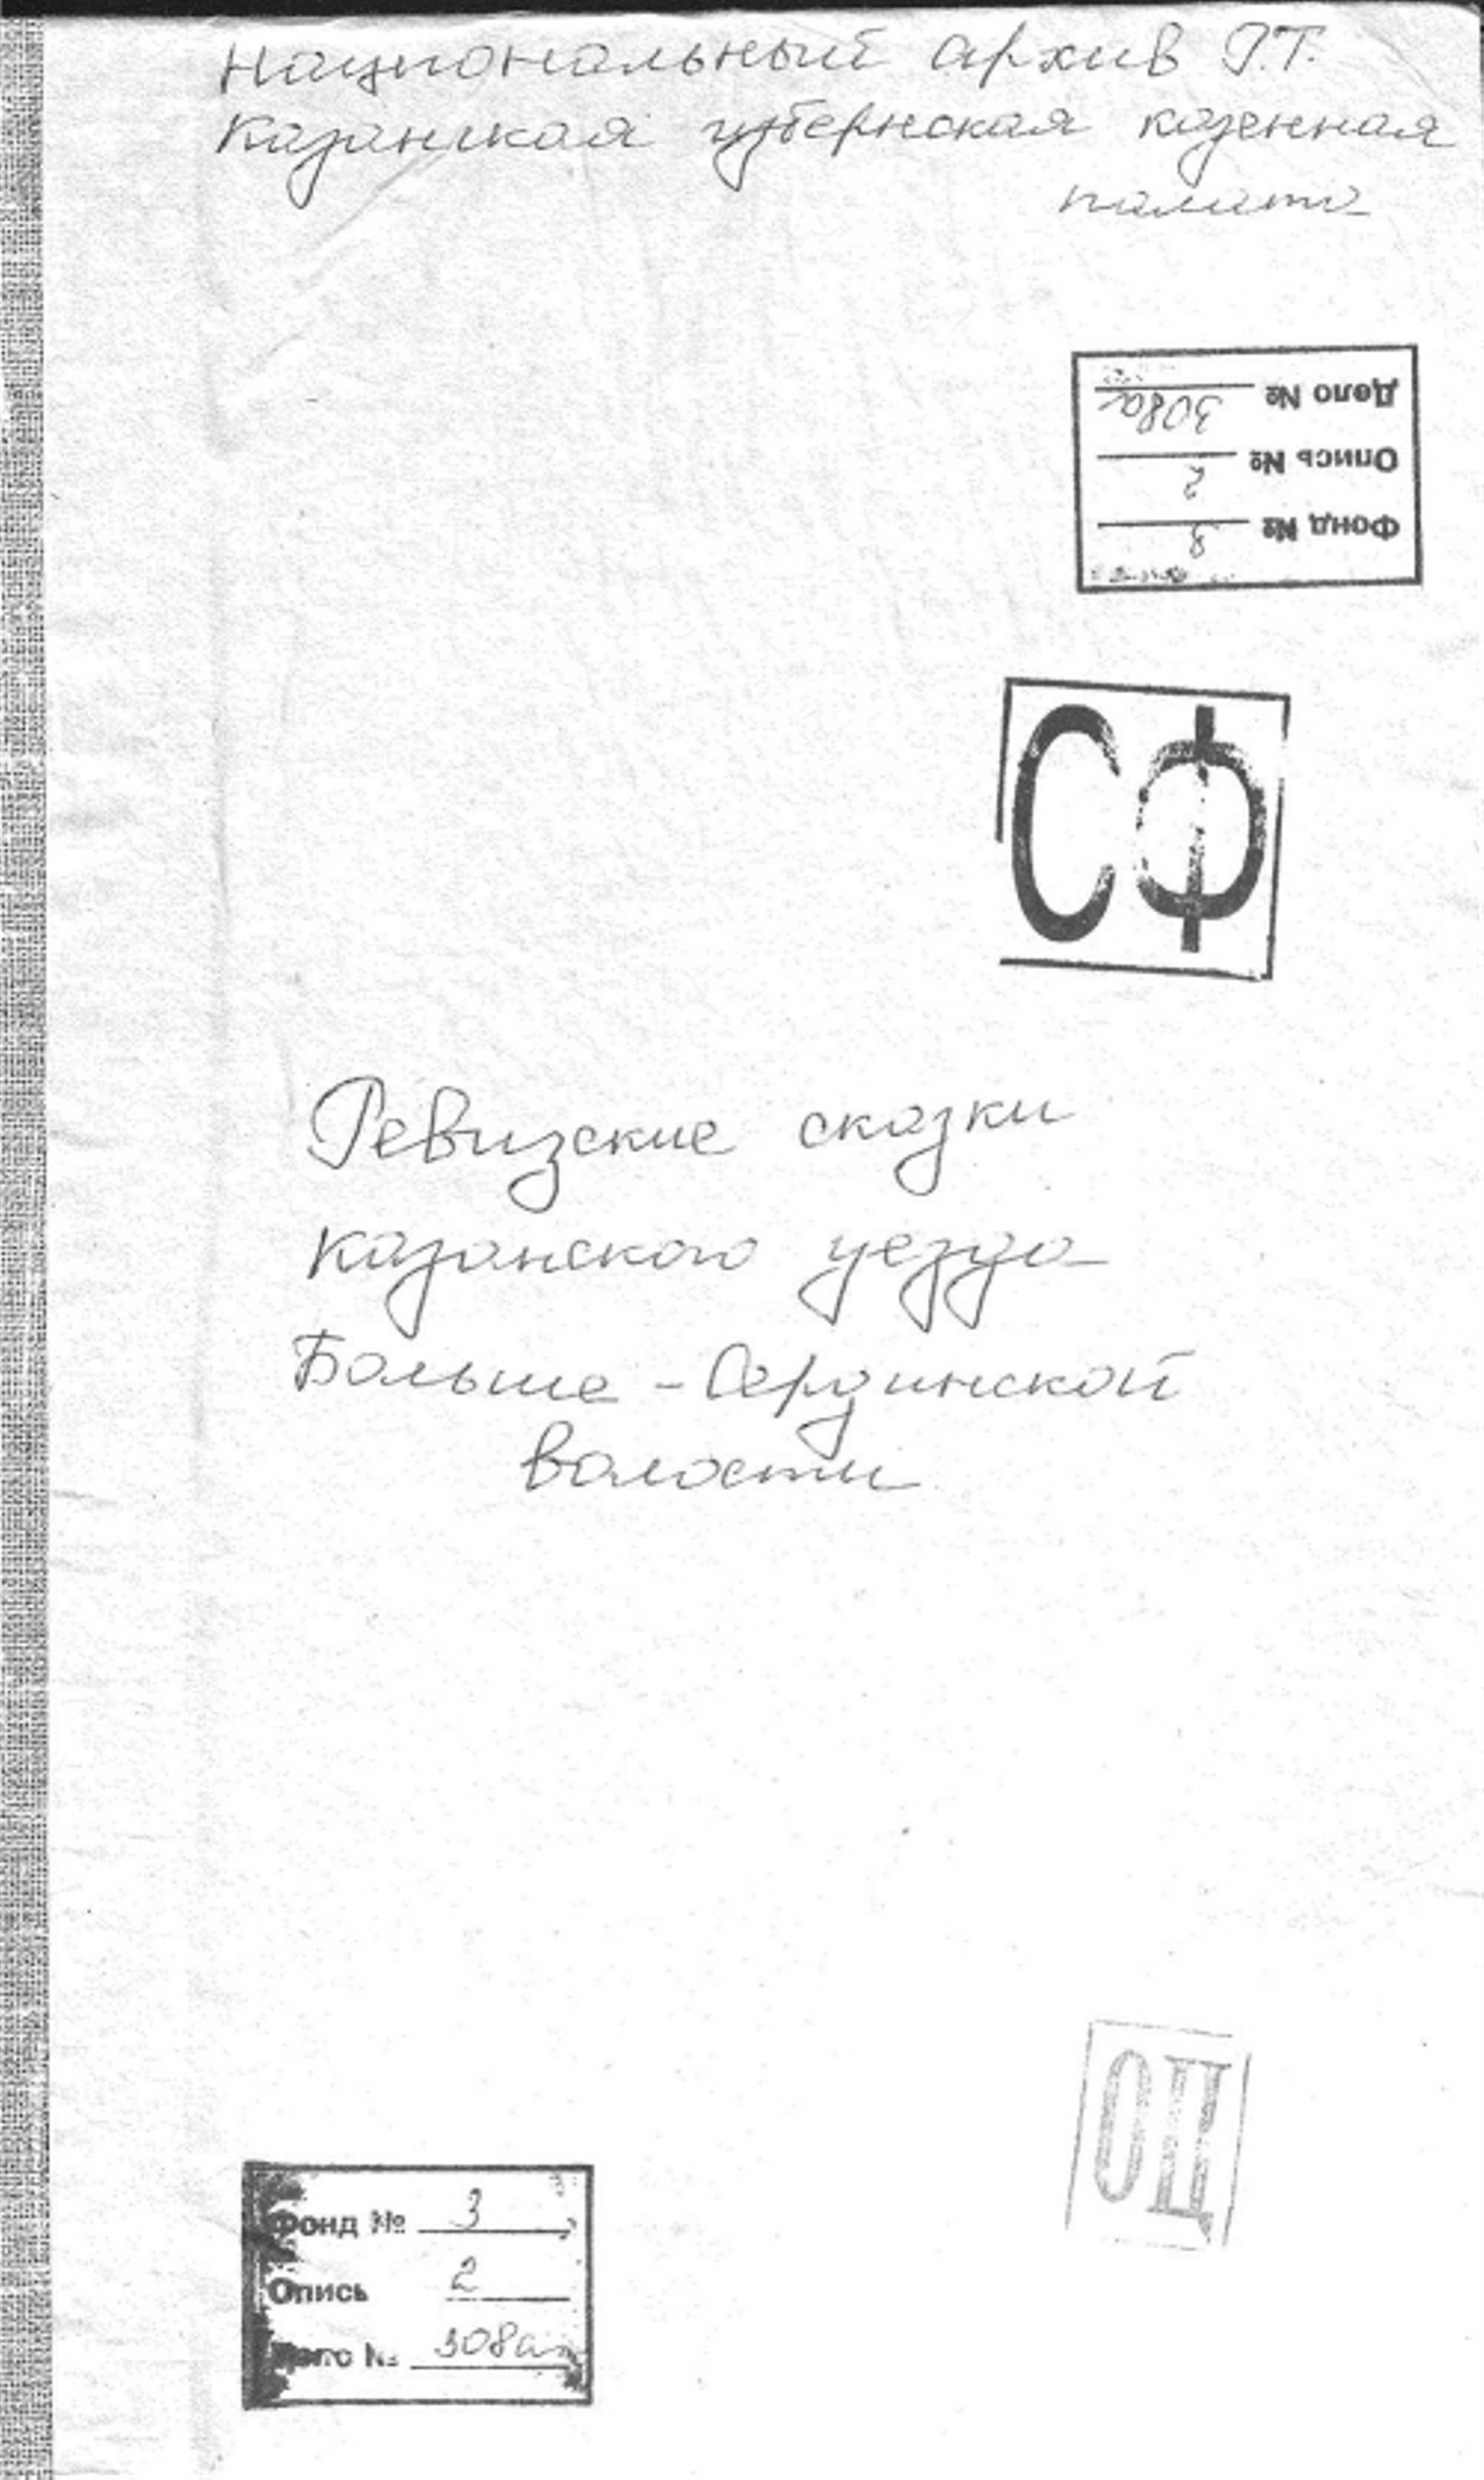 Национальный архив Р.Т.
Казанская губернская казенная
палата
Дело № 308а
Опись № 2
Фонд № 3
СФ
Ревизские сказки
Казанского уезда
Больше-Сердинской
волости
ОЦ
Фонд № 3
Опись 2
Дело № 308а